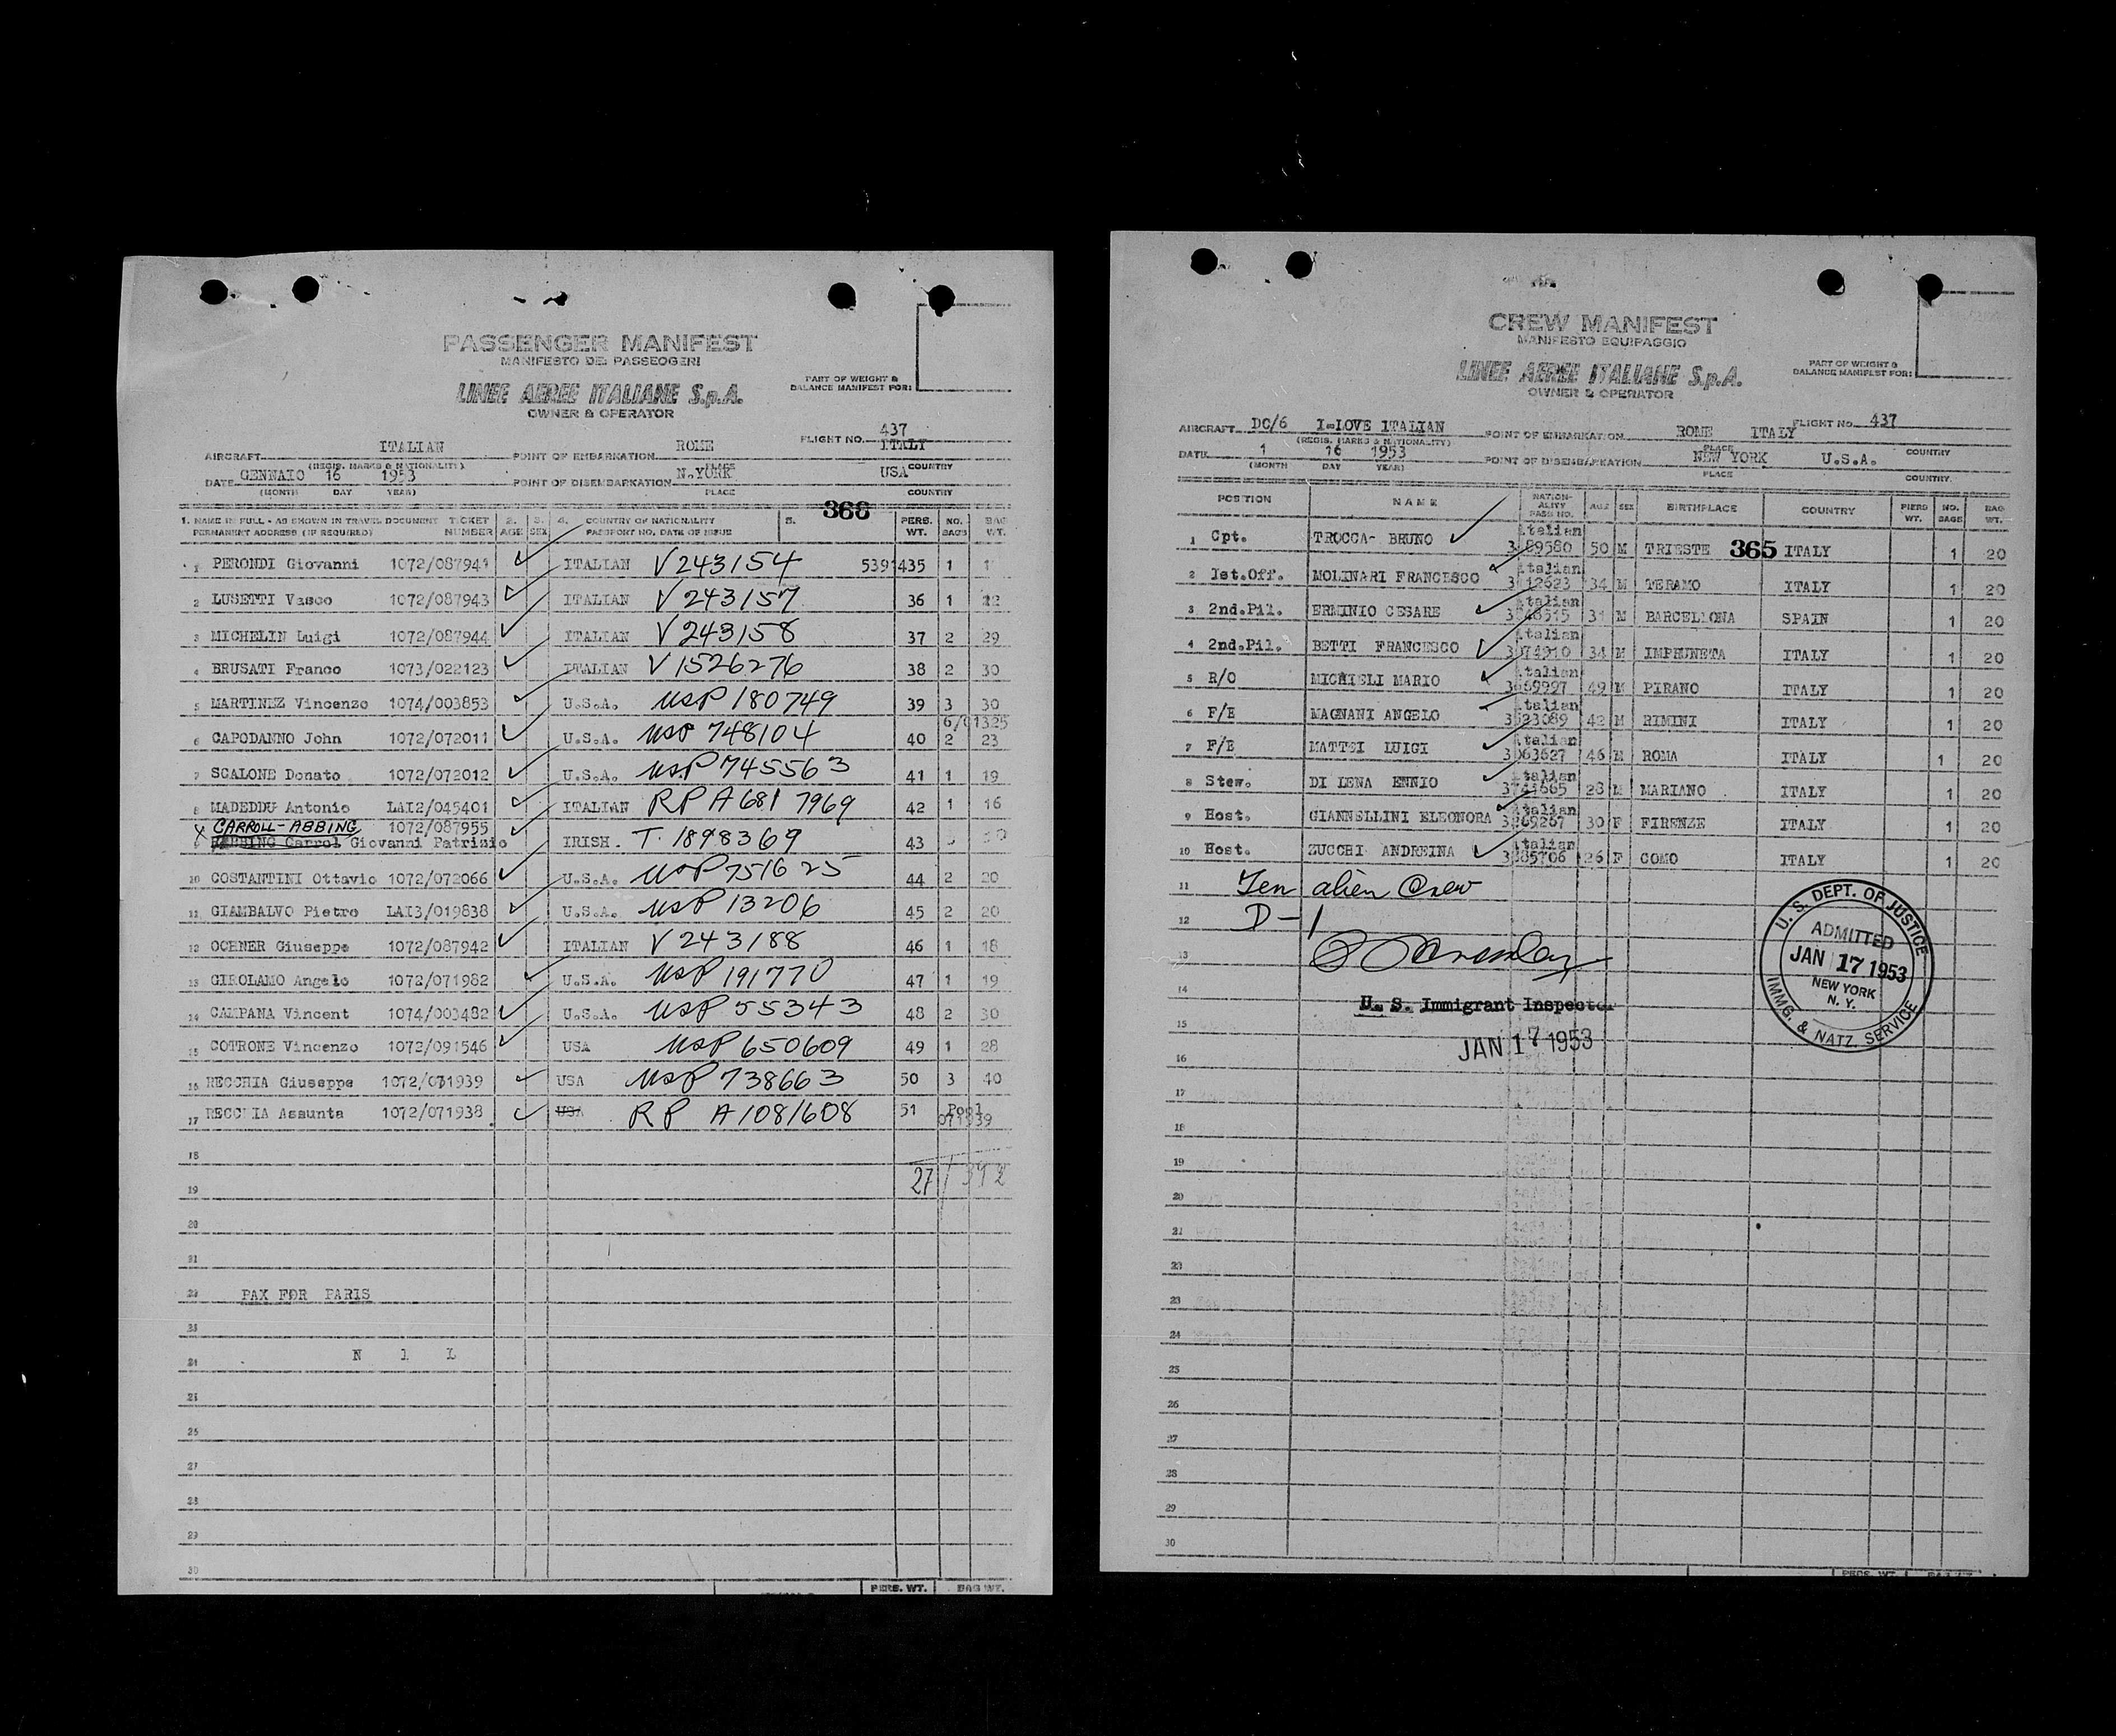 PASSENGER MANIFEST
MANIFESTO DEI PASSEGGERI
LINEE AEREE ITALIANE S.p.A.
OWNER & OPERATOR
PART OF WEIGHT &
BALANCE MANIFEST FOR:
AIRCRAFT ITALIAN POINT OF EMBARKATION ROME FLIGHT NO. 437 ITALY
(REGIS. MARKS & NATIONALITY) PLACE COUNTRY
DATE GENNAIO 16 1953 POINT OF DISEMBARKATION N.YORK USA
(MONTH DAY YEAR) PLACE COUNTRY
368
1. NAME IN FULL - AS SHOWN IN TRAVEL DOCUMENT TICKET 2. 3. 4. COUNTRY OF NATIONALITY 5. PERS. NO. BAG
PERMANENT ADDRESS (IF REQUIRED) NUMBER AGE SEX PASSPORT NO. DATE OF ISSUE WT. BAGS WT.
1 PERONDI Giovanni 1072/087941 ITALIAN V243154 5391435 1
2 LUSETTI Vasco 1072/087943 ITALIAN V243157 36 1 22
3 MICHELIN Luigi 1072/087944 ITALIAN V243158 37 2 29
4 BRUSATI Franco 1073/022123 ITALIAN V1526276 38 2 30
5 MARTINEZ Vincenzo 1074/003853 U.S.A. USP 180749 39 3 30
6/91325
6 CAPODANNO John 1072/072011 U.S.A. USP 748104 40 2 23
7 SCALONE Donato 1072/072012 U.S.A. USP 745563 41 1 19
8 MADEDDU Antonio LAI2/045401 ITALIAN RP A681 7969 42 1 16
X CARROLL-ABBING 1072/087955
9 ABBING Carrol Giovanni Patrizio IRISH. T. 1898369 43
10 COSTANTINI Ottavio 1072/072066 U.S.A. USP 751625 44 2 20
11 GIAMBALVO Pietro LAI3/019838 U.S.A. USP 13206 45 2 20
12 OCHNER Giuseppe 1072/087942 ITALIAN V243188 46 1 18
13 GIROLAMO Angelo 1072/071982 U.S.A. USP 191770 47 1 19
14 CAMPANA Vincent 1074/003482 U.S.A. USP 55343 48 2 30
15 COTRONE Vincenzo 1072/091546 USA USP 650609 49 1 28
16 RECCHIA Giuseppe 1072/071939 USA USP 738663 50 3 40
17 RECCHIA Assunta 1072/071938 USA RP A1081608 51 Pool
071939
18
27/392
19
20
21
22 PAX FOR PARIS
23
24 N I L
25
26
27
28
29
30
PERS. WT. BAG WT.
CREW MANIFEST
MANIFESTO EQUIPAGGIO
LINEE AEREE ITALIANE S.p.A.
OWNER & OPERATOR
PART OF WEIGHT &
BALANCE MANIFEST FOR:
AIRCRAFT DC/6 I-LOVE ITALIAN POINT OF EMBARKATION ROME ITALY FLIGHT NO. 437
(REGIS. MARKS & NATIONALITY) PLACE COUNTRY
DATE 1 16 1953 POINT OF DISEMBARKATION NEW YORK U.S.A.
(MONTH DAY YEAR) PLACE COUNTRY
POSITION NAME NATIONALITY PASS NO. AGE SEX BIRTHPLACE COUNTRY PERS WT. NO. BAGS BAG WT.
365
1 Cpt. TROCCA- BRUNO Italian 3689580 50 M TRIESTE ITALY 1 20
2 Ist.Off. MOLINARI FRANCESCO Italian 34 M TERAMO ITALY 1 20
3 2nd.Pil. ERMINIO CESARE Italian 31 M BARCELLONA SPAIN 1 20
4 2nd.Pil. BETTI FRANCESCO Italian 34 M IMPRUNETA ITALY 1 20
5 R/O MICHIELI MARIO Italian 49 M PIRANO ITALY 1 20
6 F/E MAGNANI ANGELO Italian 42 M RIMINI ITALY 1 20
7 F/E MATTEI LUIGI Italian 46 M ROMA ITALY 1 20
8 Stew. DI LENA ENNIO Italian 28 M MARIANO ITALY 1 20
9 Host. GIANNELLINI ELEONORA Italian 30 F FIRENZE ITALY 1 20
10 Host. ZUCCHI ANDREINA Italian 26 F COMO ITALY 1 20
11 Ten alien Crew
12 D-1
13
14 U. S. Immigrant Inspector
15 JAN 17 1953
U. S. DEPT. OF JUSTICE
ADMITTED
JAN 17 1953
NEW YORK
N. Y.
IMMG. & NATZ. SERVICE
16
17
18
19
20
21
22
23
24
25
26
27
28
29
30